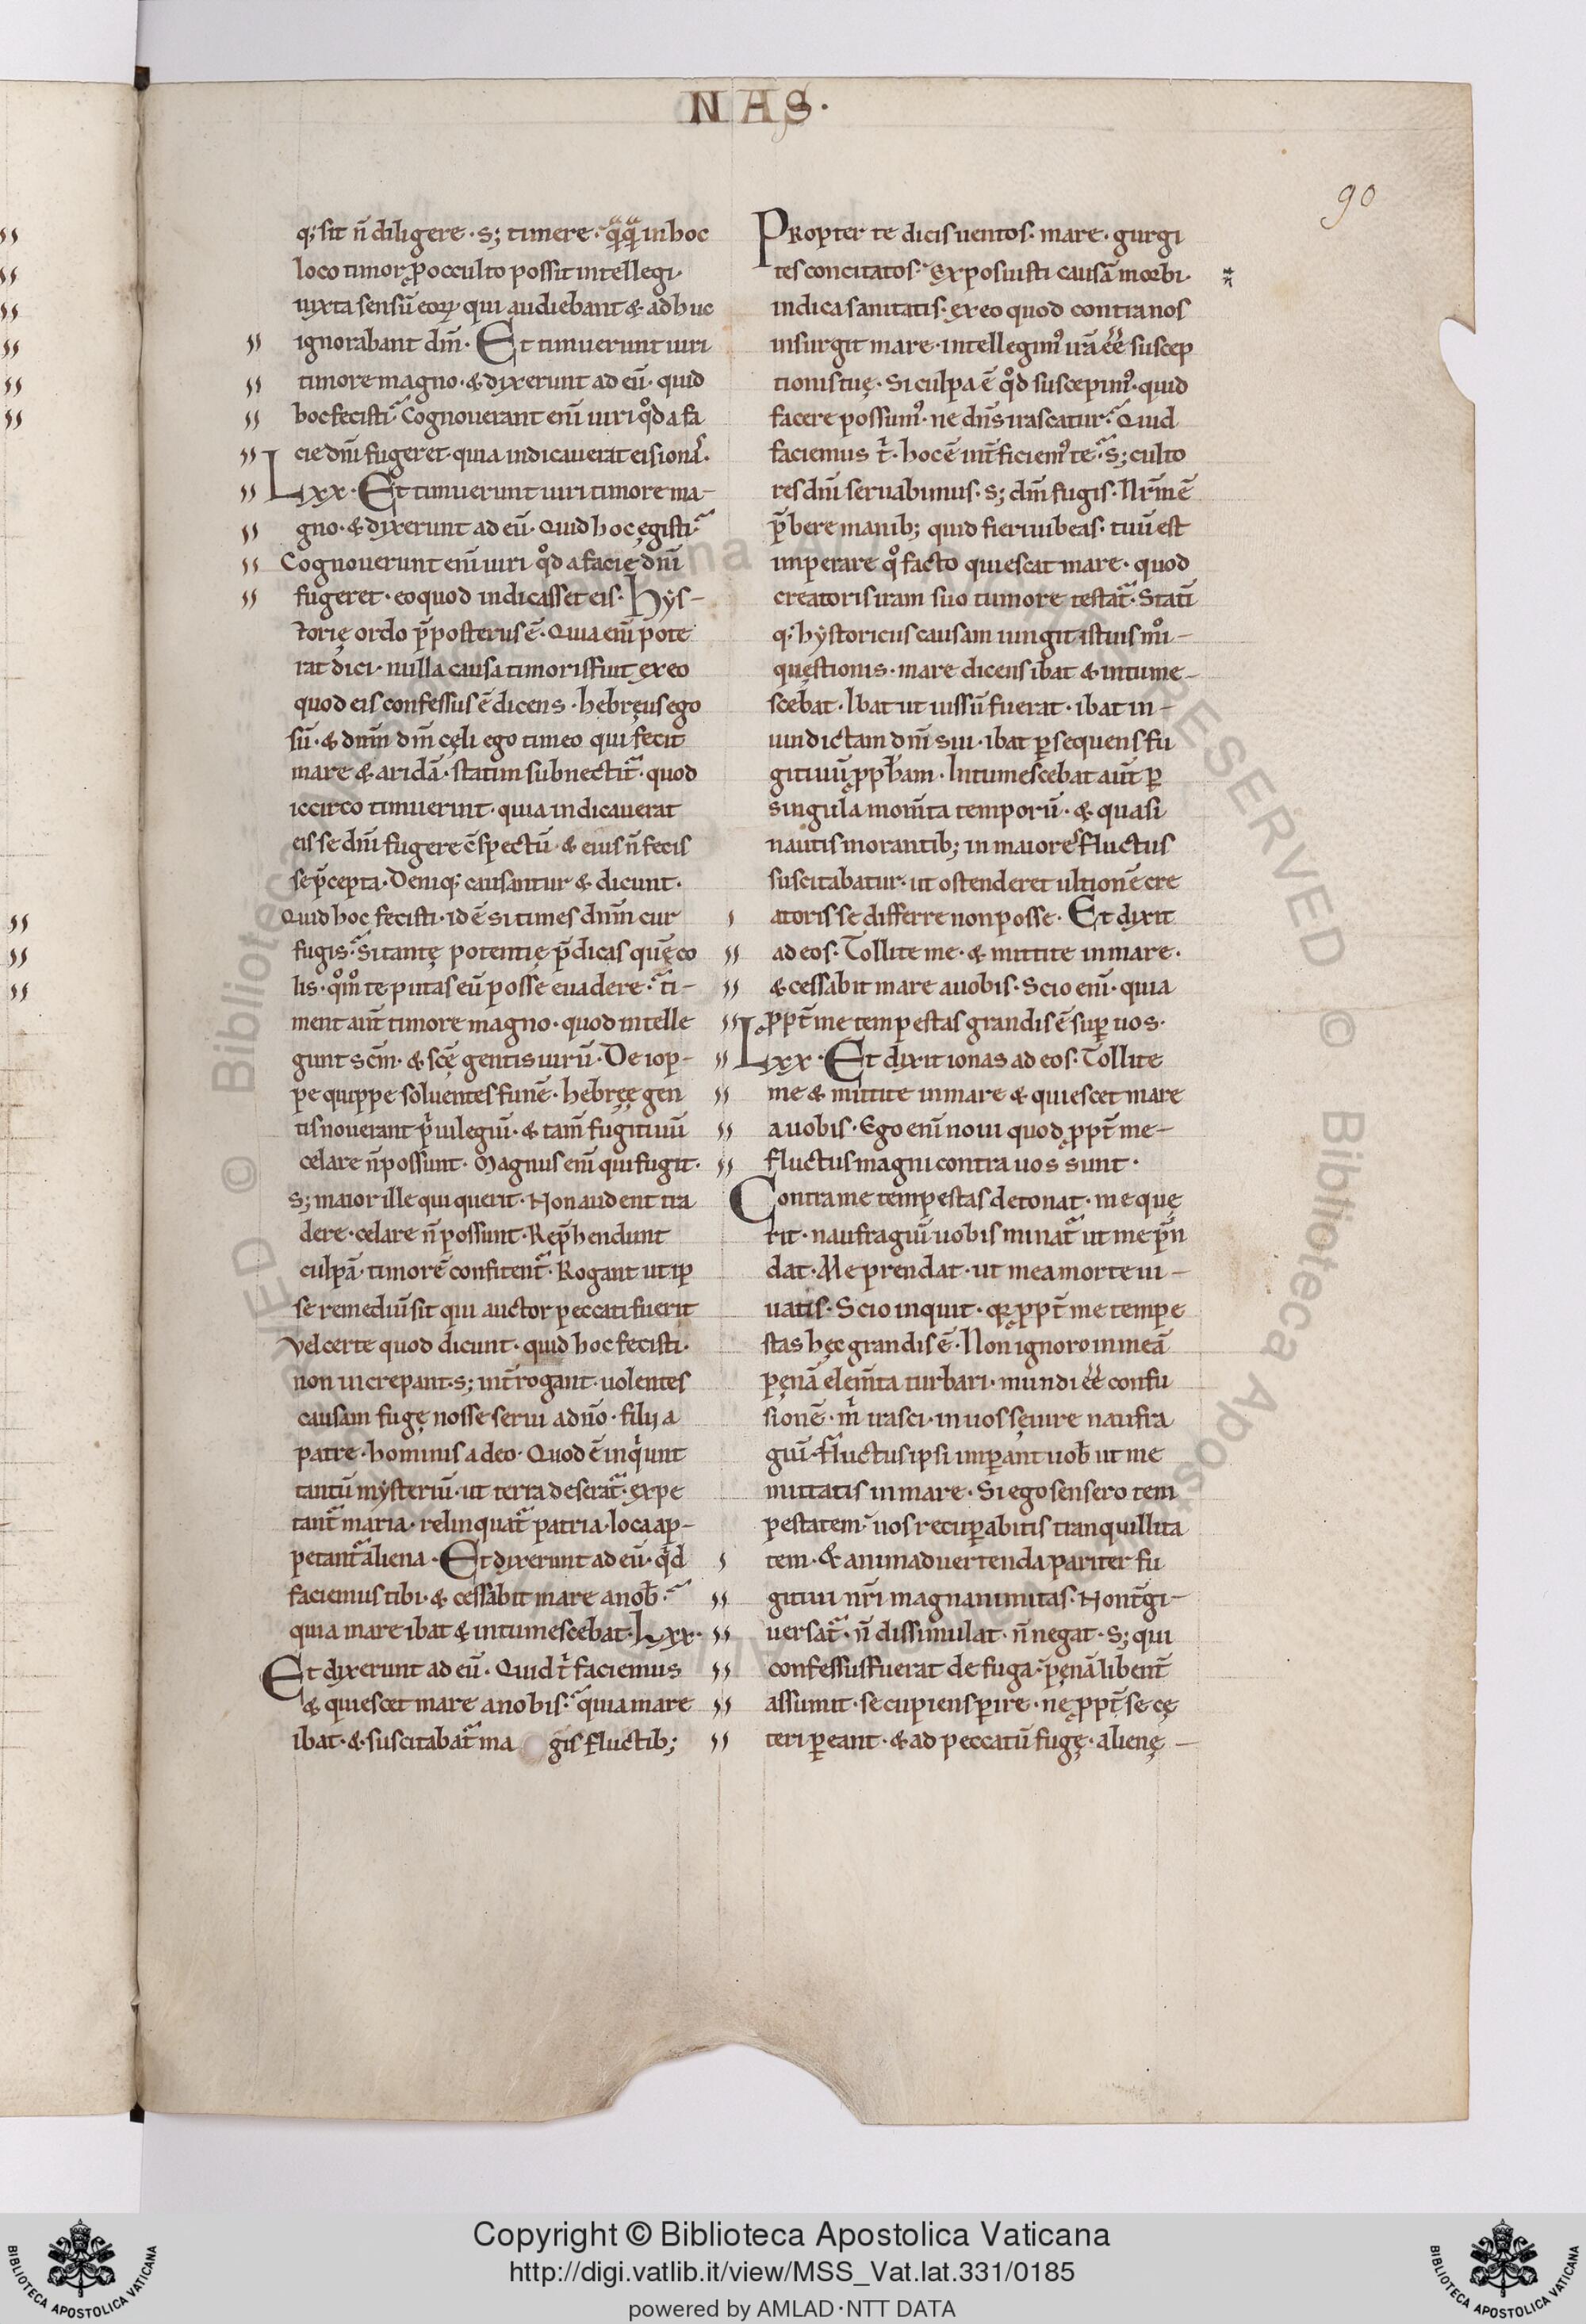 NAS·
90
q; sit n̄ diligere · s; timere · q̄q̄ in hoc
loco timor ꝓ occulto possit intellegi·
iuxta sensū eoꝝ qui audiebant & adhuc
ignorabant dm̄· Et timuerunt uiri
timore magno· & dixerunt ad eū· quid
hoc fecisti Cognouerant eni uiri qd̄ a fa
cie dn̄i fugeret· quia indicauerat eis ionas·
Lxx· Et timuerunt uiri timore ma-
gno· & dixerunt ad eū· Quid hoc egisti
Cognouerunt eni uiri qd̄ a facie dn̄i
fugeret· eo quod indicasset eis· Hys-
torię ordo p̄posterus ē· Quia eni pote
rat dici· nulla causa timoris fuit ex eo
quod eis confessus ē dicens· hebręus ego
sū· & dnm̄ dm̄ cęli ego timeo qui fecit
mare & aridā· statim subnectit᷑· quod
iccirco timuerint· quia indicauerat
eis se dn̄i fugere c̄spectū· & eius n̄ fecis
se p̄cepta· Deniq; causantur & dicunt·
Quid hoc fecisti· id ē si times dnm̄ cur
fugis· Si tantę potentię p̄dicas quē co
lis· qm̊ te putas eū posse euadere· ti-
ment aut̄ timore magno· quod intelle
gunt scm̄· & scę̄ gentis uirū· De iop-
pe quippe soluentes funē· hebręę gen
tis nouerant p̄uilegiū· & tam̄ fugitiuū
celare n̄ possunt· Magnus eni qui fugit·
s; maior ille qui querit· Non audent tra
dere· celare n̄ possunt· Rep̄hendunt
culpā· timorē confitent᷑· Rogant ut ip
se remediū sit qui auctor peccati fuerit
Vel certe quod dicunt· quid hoc fecisti·
non increpant· s; int̄rogant· uolentes
causam fugę nosse serui a dn̄o· filii a
patre· hominis a deo· Quod ē inquiunt
tantū mysteriū· ut terra deserat᷑· expe
tant᷑ maria· relinquat᷑ patria· loca ap-
petant᷑ aliena· Et dixerunt ad eū· qd̄
faciemus tibi· & cessabit mare a nob̄·
quia mare ibat & intumescebat· Lxx·
Et dixerunt ad eū· Quid t̄ faciemus
& quiescet mare a nobis· quia mare
ibat· & suscitabat᷑ magis fluctib;
PRopter te dicis uentos· mare· gurgi
tes concitatos· Exposuisti causā morbi·
indica sanitatis· ex eo quod contra nos
insurgit mare· intellegim᷒ irā ēē suscep
tionis tuę· Si culpa ē qd̄ suscepim᷒· quid
facere possum᷒· ne dn̄s irascatur· Quid
faciemus t̄· hoc ē int̄ficiem᷒ te· s; culto
res dn̄i seruabimus· s; dm̄ fugis· Nr̄m ē
p̄bere manib; quid fieri iubeas· tuū est
imperare q̊ facto quiescat mare· quod
creatoris iram suo tumore testat᷑· Stati
q; hystoricus causam iungit istius m̊i-
quęstionis· mare dicens ibat & intume-
scebat· Ibat ut iussū fuerat· ibat in-
uindictam dn̄i sui· ibat ꝑsequens fu
gitiuū ꝓph̄am· Intumescebat aut̄ ꝑ
singula mom̄ta temporū· & quasi
nautis morantib; in maiores fluctus
suscitabatur· ut ostenderet ultionē cre
atoris se differre non posse· Et dixit
ad eos· Tollite me· & mittite in mare·
& cessabit mare a uobis· Scio eni· quia
ꝓpt̄ me tempestas grandis ē suꝑ uos·
Lxx· Et dixit ionas ad eos· Tollite
me & mittite in mare & quiescet mare
a uobis· Ego eni noui quod ꝓpt̄ me-
fluctus magni contra uos sunt·
Contra me tempestas detonat· me quę
rit· naufragiū uobis minat᷑ ut me p̄n
dat· Me prendat· ut mea morte ui-
uatis· Scio inquit· qꝛ ꝓpt̄ me tempe
stas hęc grandis ē· Non ignoro in meā
pęnā elem̄ta turbari· mundi ēē confu
sionē· m̄ irasci· in uos sęuire naufra
giū· Fluctus ipsi imꝑant uob̄ ut me
mittatis in mare· Si ego sensero tem
pestatem· uos recuꝑabitis tranquillita
tem· & animaduertenda pariter fu
gitiui nr̄i magnanimitas· Non t̄gi-
uersat᷑· n̄ dissimulat· n̄ negat· s; qui
confessus fuerat de fuga· pęnā libent̄
assumit· se cupiens ꝑire· ne ꝓpt̄ se cę
teri ꝑeant· & ad peccatū fugę· alienę-
© Biblioteca Apostolica Vaticana
Copyright © Biblioteca Apostolica Vaticana
http://digi.vatlib.it/view/MSS_Vat.lat.331/0185
powered by AMLAD·NTT DATA
BIBLIOTECA APOSTOLICA VATICANA
BIBLIOTECA APOSTOLICA VATICANA